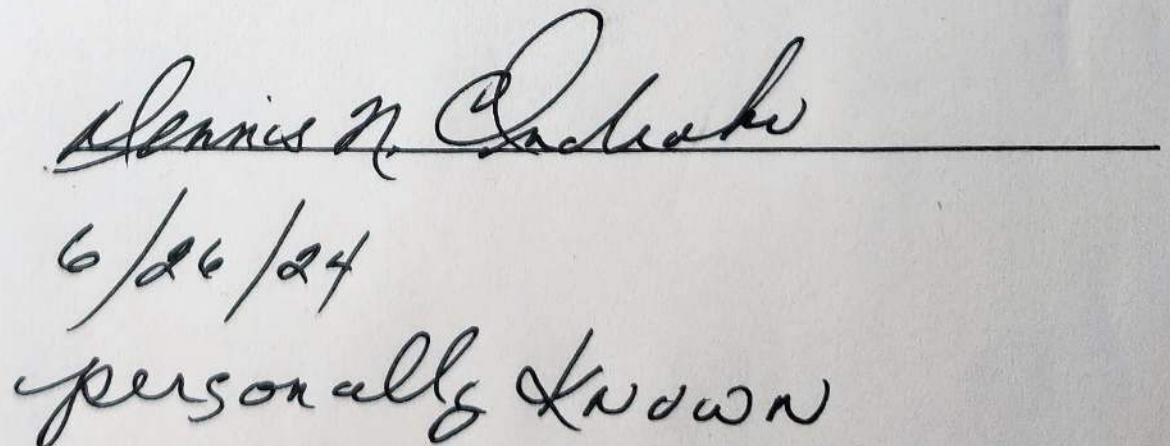 Dennis N.
6/26/24
personally Known